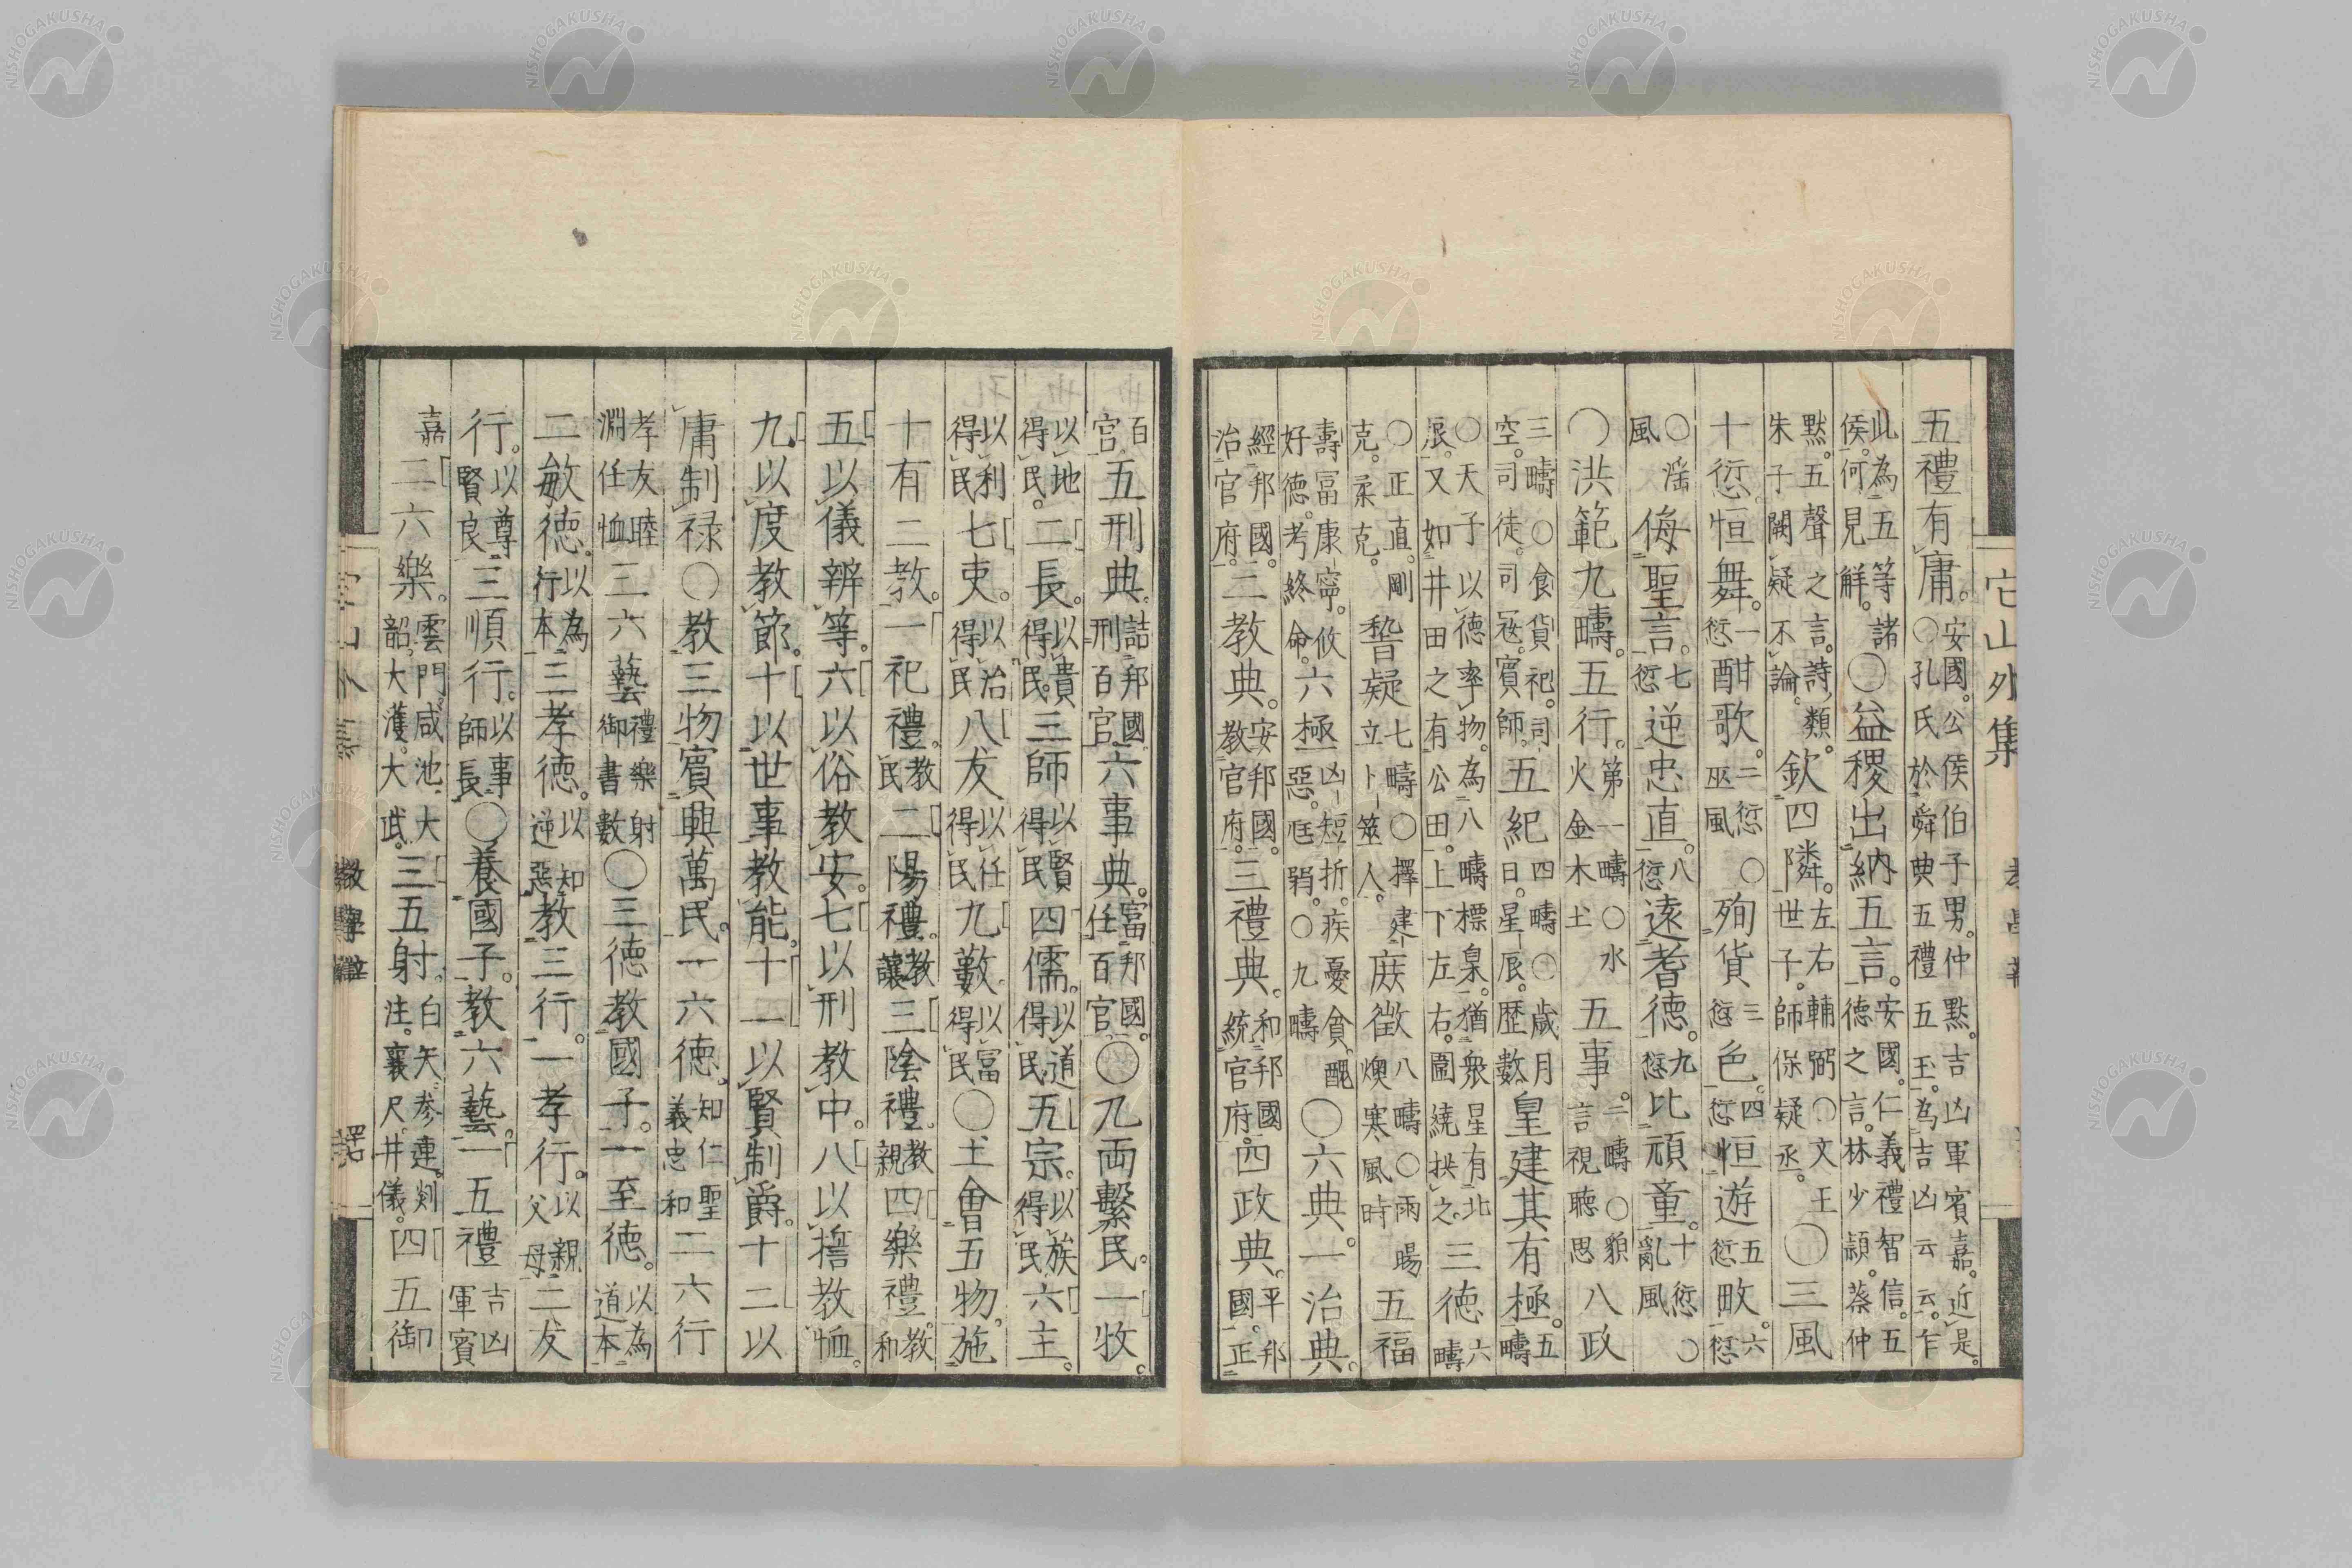 它山外集
五禮有庸。〇安國。公侯伯子男。仲默。吉凶軍賓嘉。近是。孔氏於舜典五禮五玉。為吉凶云云。乍
此為五等諸侯。何見解。〇益稷出納五言。安國。仁義禮智信。五德之言。林少頴。蔡仲
默。五聲之言。詩類。朱子闕疑不論。欽四隣。左右輔弼〇文王世子。師保疑丞。〇三風
十愆。恒舞。一愆酣歌。二愆〇巫風殉貨三愆色。四愆恒遊五愆畋。六愆
〇淫風侮聖言。七愆逆忠直。八愆遠耆德。九愆比頑童。十愆〇亂風
〇洪範九疇。五行。第一疇〇水火金木土五事。二疇〇貌言視聴思八政
三疇〇食貨祀。司空。司徒。司寇。賓師。五紀四疇〇歳月日。星辰。歴數皇建其有極。五疇
〇天子以德率物。為八疇標臬。猶衆星有北辰。又如井田之有公田。上下左右。圍繞拱之三德六疇
〇正直。剛克。柔克。稽疑七疇〇擇建立卜筮人。庶徴八疇〇雨暘燠寒風時五福
壽冨康寧。攸好德。考終命。六極凶短折。疾憂貧。醜惡。尫弱。〇九疇〇六典。一治典。
經邦國。治官府。二教典。安邦國。教官府。三禮典。和邦國統官府。四政典。平邦國。正
百官五刑典。詰邦國刑百官六事典。富邦國。任百官〇九両繫民。一牧。
以地得民。二長。以貴得民。三師以賢得民四儒。以道得民五宗。以族得民六主。
以利得民七吏。以治得民八友以任得民九藪。以富得民〇土會五物。施
十有二教。一祀禮。教民二陽禮。教讓三陰禮。教親四樂禮。教和
五以儀辨等。六以俗教安。七以刑教中。八以誓教恤。
九以度教節。十以世事教能。十一以賢制爵。十二以
庸制禄〇教三物賓興萬民。一六徳。知仁聖義忠和二六行
孝友睦淵任恤三六藝禮樂射御書數〇三徳教國子。一至徳。以為道本
二敏徳。以為行本三孝徳。以知逆惡教三行。一孝行。以親父母二友
行。以尊賢良三順行。以事師長〇養國子。教六藝。一五禮吉凶軍賓
嘉二六樂。雲門咸池大韶大濩。大武。三五射。白矢参連。剡注。襄尺。井儀。四五御